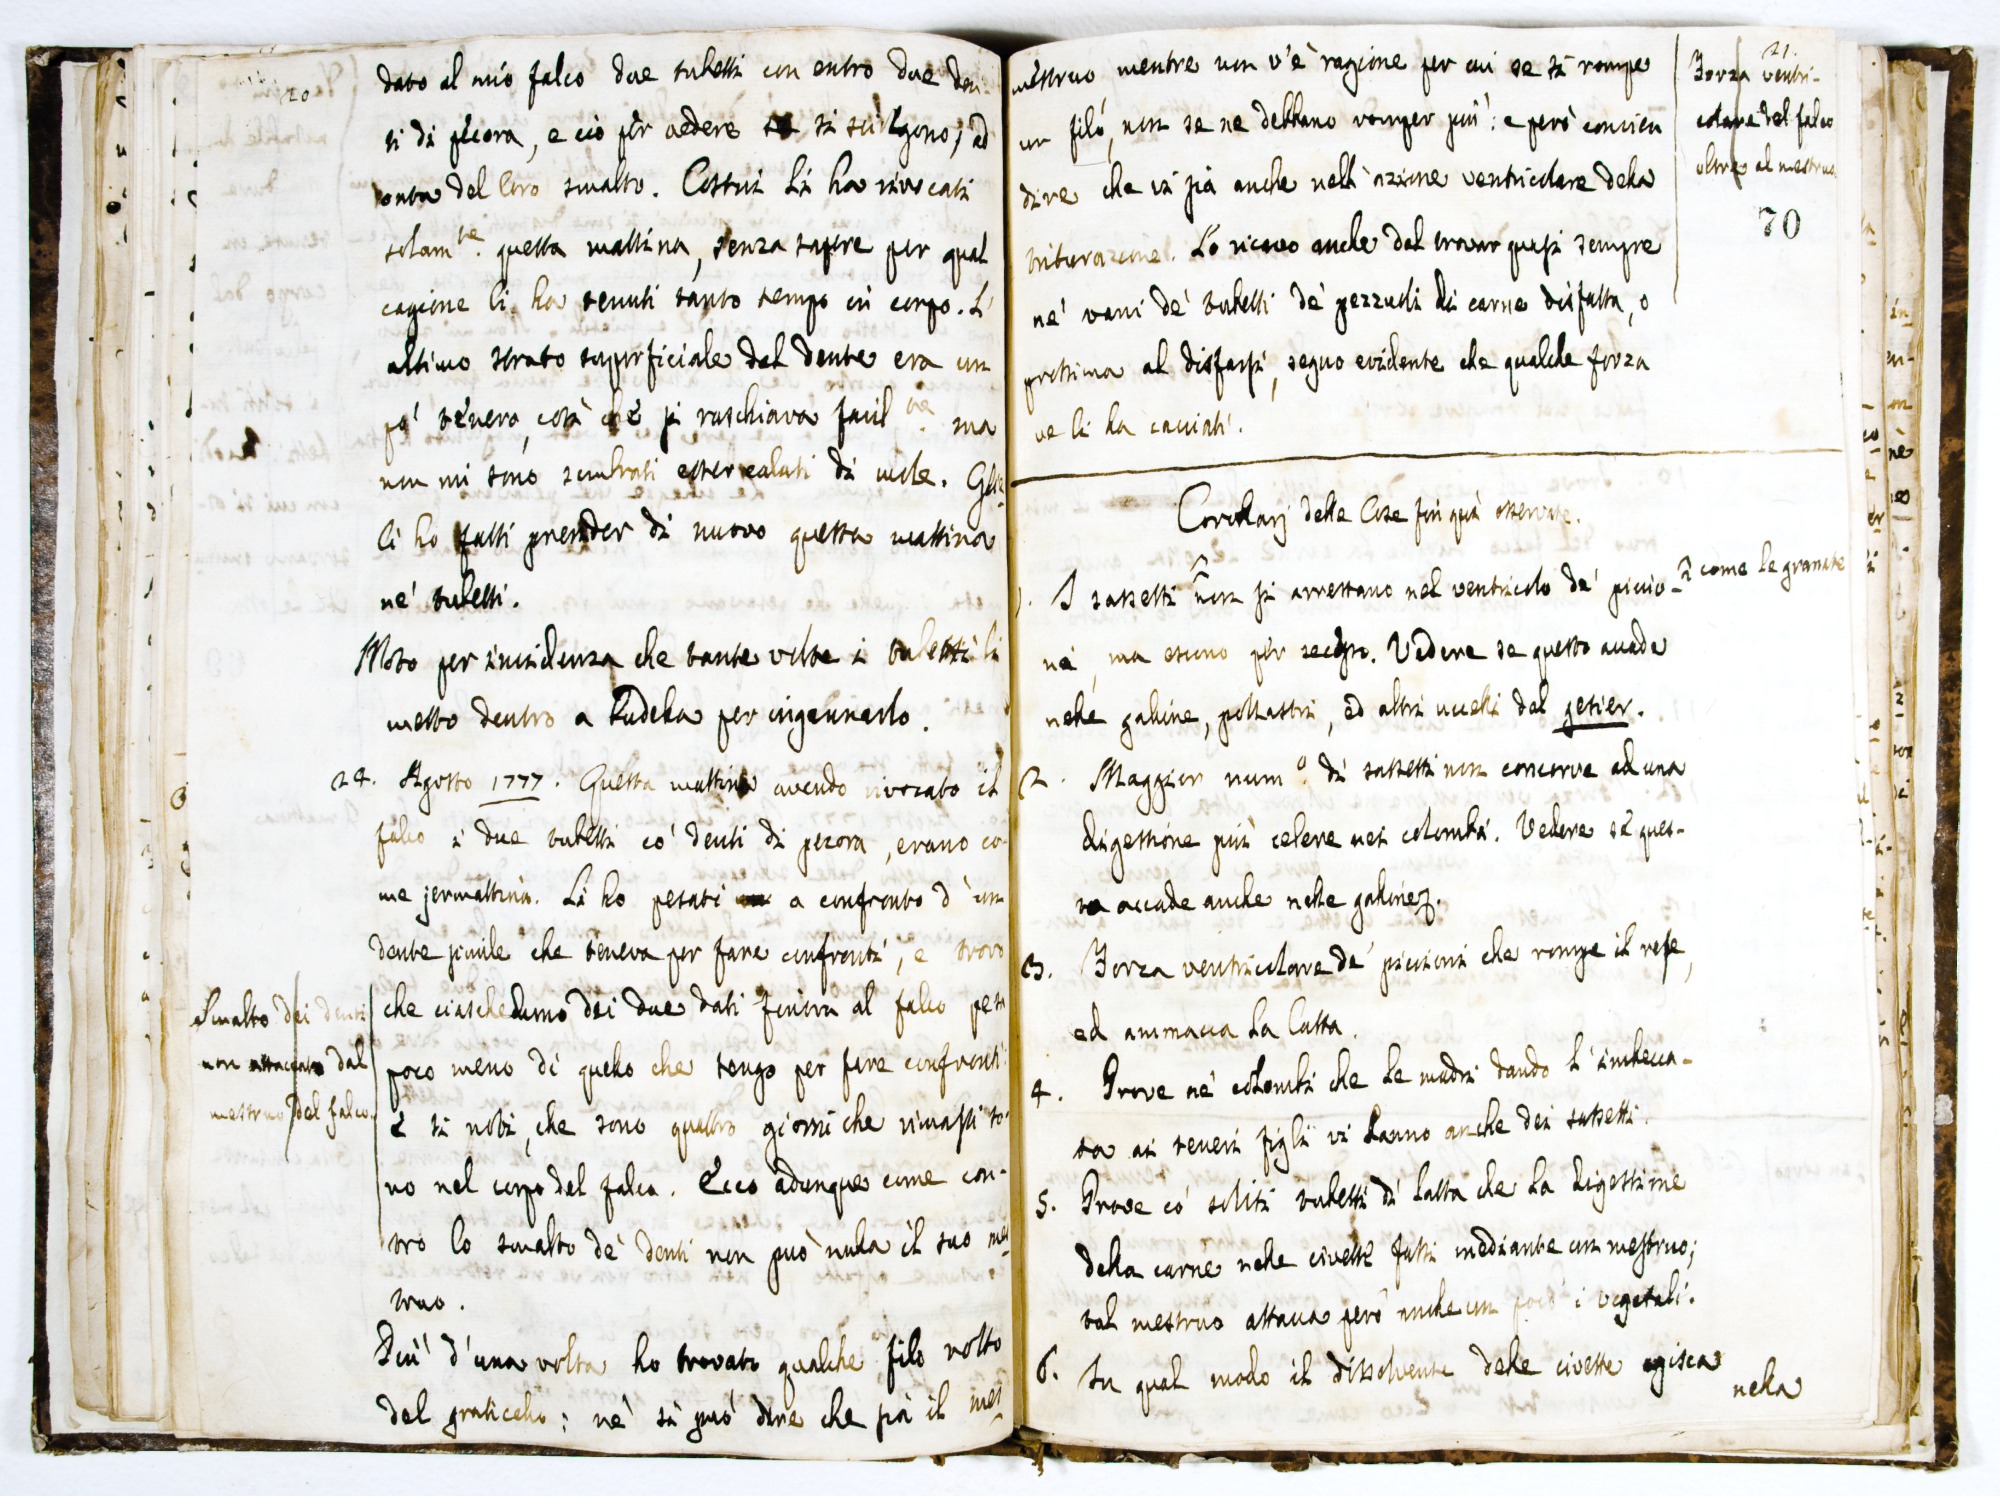 20
dato al mio falco due tubetti con entro due den-
ti di pecora, e ciò per vedere se si sciolgono, ad
onta del loro smalto. Costui li ha rivocati
solam.te questa mattina, senza sapere per qual
cagione li ha tenuti tanto tempo in corpo. L'
ultimo strato superficiale del dente era un
po' tenero, così che si raschiava facil.te ma
non mi sono sembrati esser calati di mole. Glie-
li ho fatti prender di nuovo questa mattina
ne' tubetti.
Noto per incidenza che tante volte i tubetti li
metto dentro a budella per ingannarlo.
24. Agosto 1777. Questa mattina avendo rivocato il
falco i due tubetti co' denti di pecora, erano co-
me jermattina. Li ho pesati a confronto d'un
dente simile che teneva per fare confronti, e trovo
che ciascheduno dei due dati finora al falco pesa
poco meno di quello che tengo per fare confronti:
e si noti, che sono quattro giorni che rimasti so-
no nel corpo del falco. Ecco adunque come con-
tro lo smalto de' denti non può nulla il suo mes-
truo.
Smalto dei denti
non attaccato dal
mestruo del falco.
Più d'una volta ho trovato qualche filo rotto
del graticcio: nè si può dire che sia il mes-
21.
mestruo mentre non v'è ragione per cui se si rompe
un filo, non se ne debbano romper più: e però convien
dire che vi sia anche nell'azione ventricolare della
triturazione. Lo ricavo anche dal trovar quasi sempre
ne' vani de' tubetti de' pezzuoli di carne disfatta, o
prossima al disfarsi, segno evidente che qualche forza
ve li ha cacciati.
Forza ventri-
colare del falco
oltre al mestruo.
70
Corollarj delle Cose fin quì osservate.
1. I sassetti non si arrestano nel ventricolo de' piccio-
come le granate
ni, ma escono per secesso. Vedere se questo accade
nelle galline, pollastri, ed altri uccelli dal gesier.
2. Maggior num.o di sassetti non concorre ad una
digestione più celere nei colombi. Vedere se ques-
to accade anche nelle galline.
3. Forza ventricolare de' piccioni che rompe il refe,
ed ammacca la latta.
4. Prove ne' colombi che le madri dando l'imbecca-
ta ai teneri figli vi danno anche dei sassetti.
5. Prove co' soliti tubetti di latta che la digestione
della carne nelle civette fassi mediante un mestruo;
tal mestruo attacca però anche un poco i vegetali.
6. In qual modo il dissolvente delle civette agisca
nella